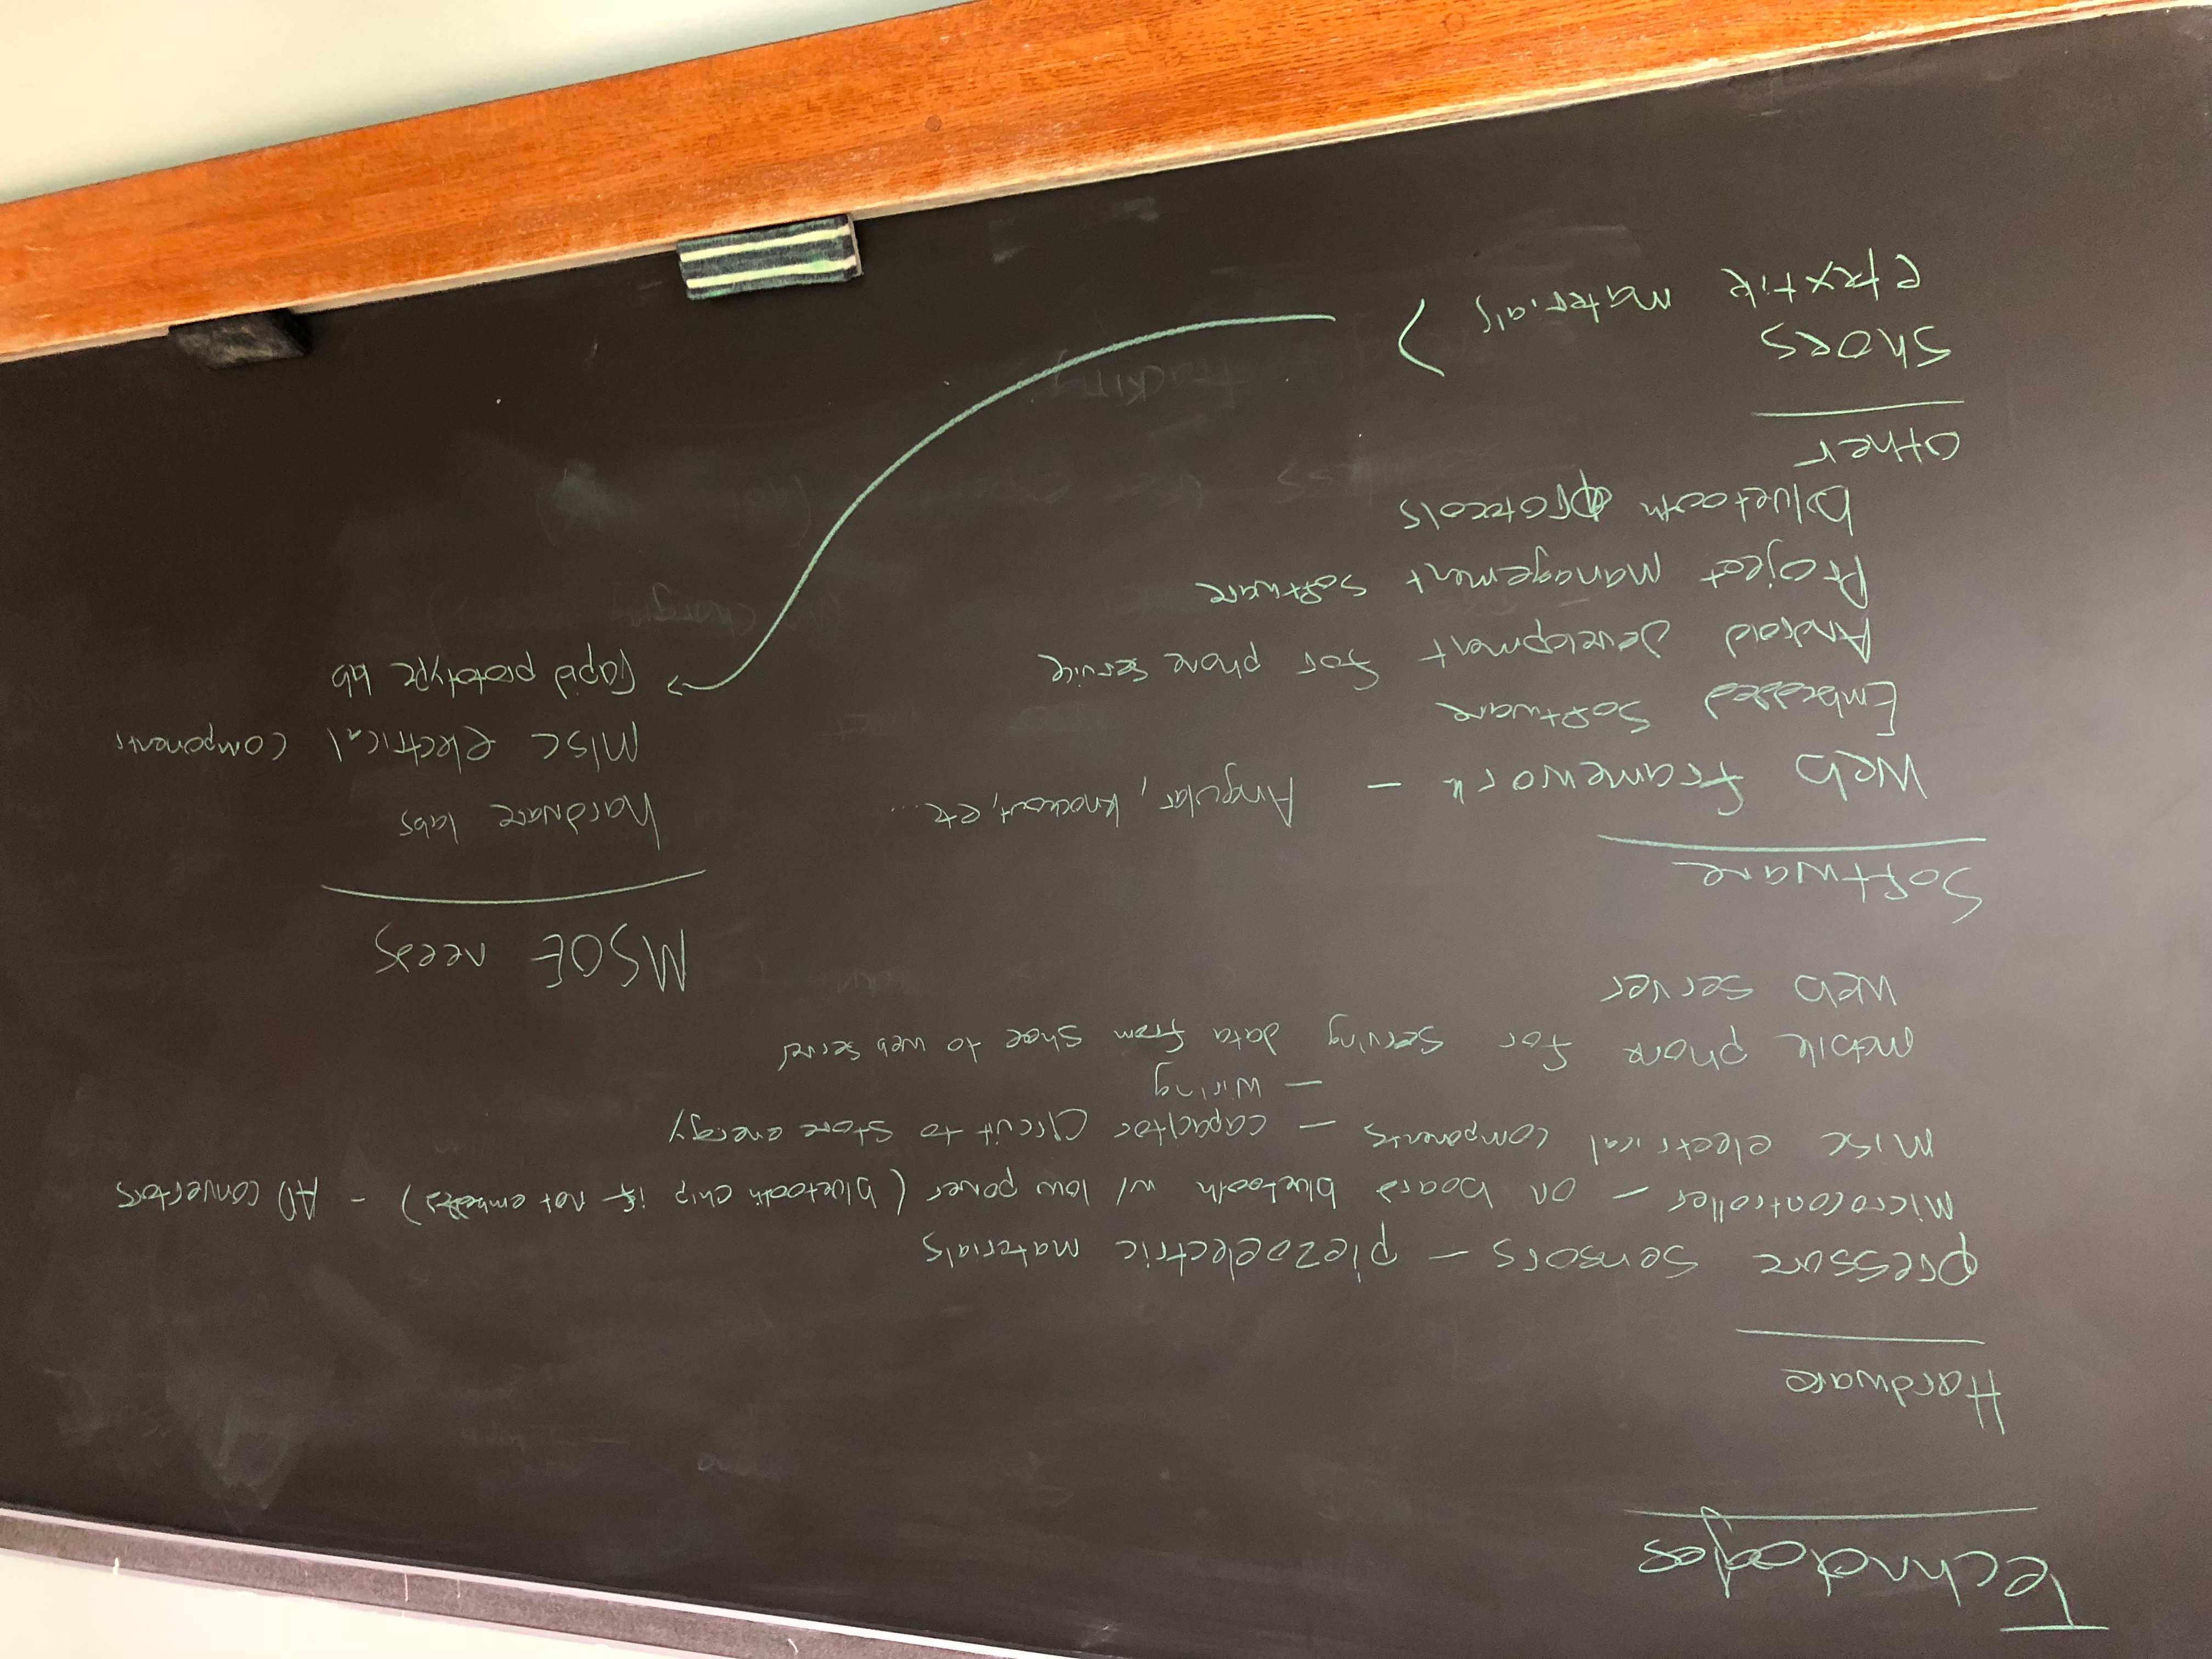 Technologies
Hardware
pressure sensors - piezoelectric materials
Microcontroller - on board bluetooth w/ low power (bluetooth chip if not embedded) - AD convertors
misc electrical components - capacitor circuit to store energy
- wiring
mobile phone for serving data from shoe to web server
Web server
Software
Web framework - Angular, knockout, etc...
Embedded Software
Android development for phone service
Project management software
bluetooth protocols
Other
shoes
etextile materials
MSOE needs
hardware labs
misc electrical components
rapid prototype lab